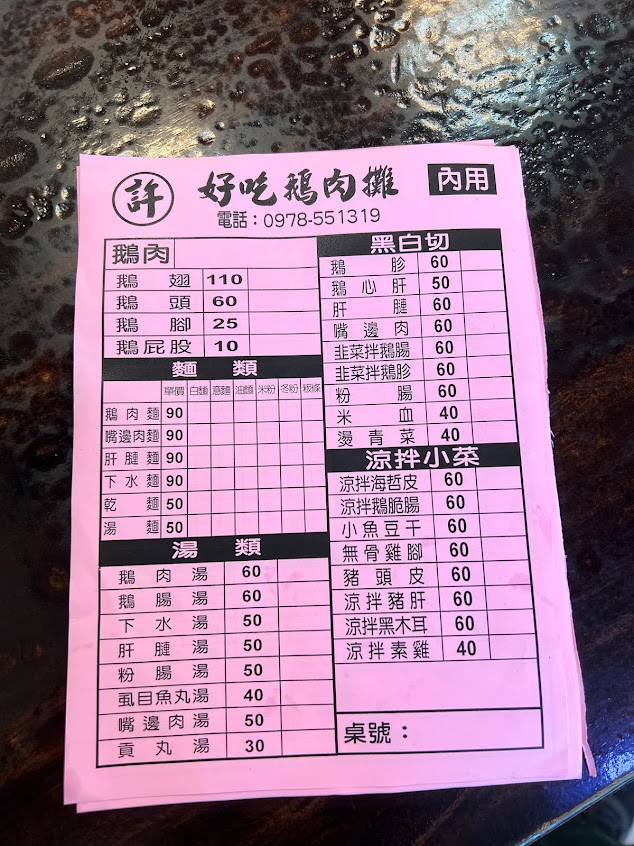 許 好吃鵝肉攤 內用
電話：0978-551319
鵝肉
鵝翅 110
鵝頭 60
鵝腳 25
鵝屁股 10
麵類
單價 白麵 意麵 油麵 米粉 冬粉 粄條
鵝肉麵 90
嘴邊肉麵 90
肝腱麵 90
下水麵 90
乾麵 50
湯麵 50
湯類
鵝肉湯 60
鵝腸湯 60
下水湯 50
肝腱湯 50
粉腸湯 50
虱目魚丸湯 40
嘴邊肉湯 50
貢丸湯 30
黑白切
鵝胗 60
鵝心肝 50
肝腱 60
嘴邊肉 60
韭菜拌鵝腸 60
韭菜拌鵝胗 60
粉腸 60
米血 40
燙青菜 40
涼拌小菜
涼拌海哲皮 60
涼拌鵝脆腸 60
小魚豆干 60
無骨雞腳 60
豬頭皮 60
涼拌豬肝 60
涼拌黑木耳 60
涼拌素雞 40
桌號：